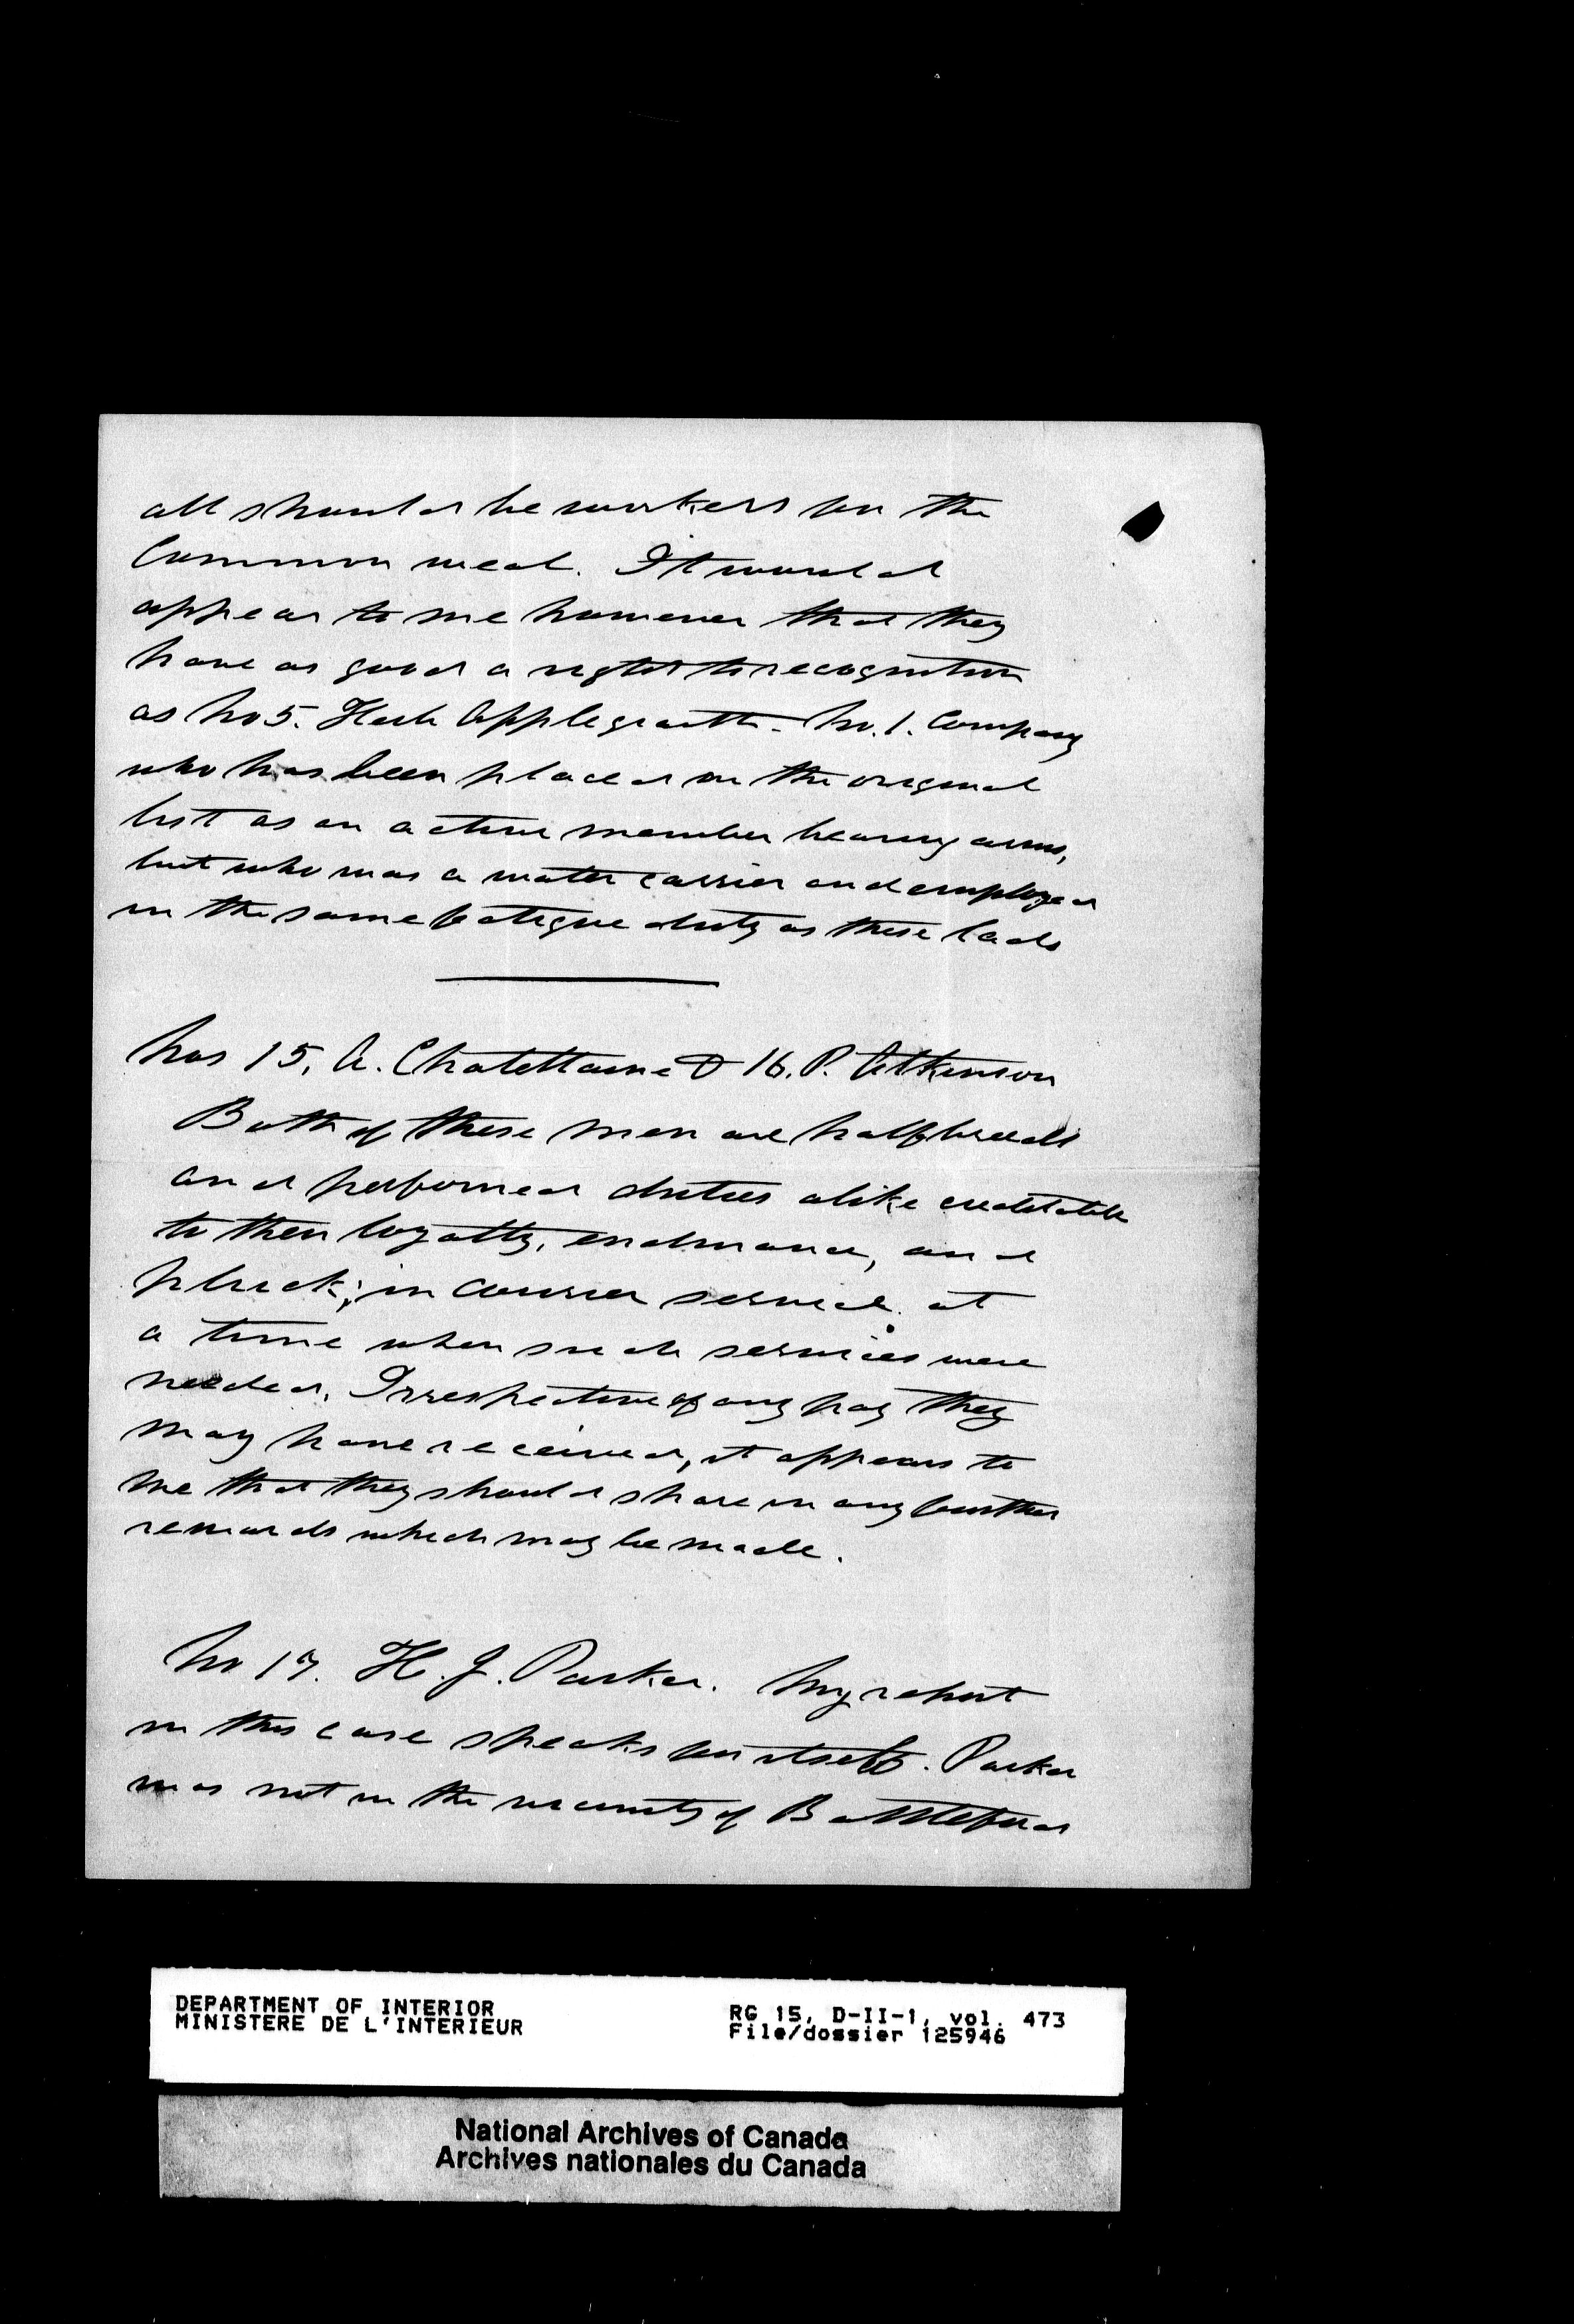 all should be workers for the
Common weal. It would
appear to me however that they
have as good a right to recognition
as No 5. Herb Applegarth. No. 1. Company
who has been placed on the original
list as an active member bearing arms,
but who was a water carrier and employed
in the same fatigue duty as these lads
Nos 15, A. Chatellaine & 16. P. Atkinson
Both of these men are halfbreeds
and performed duties alike creditable
to their loyalty, endurance, and
pluck; in courier service at
a time when such services were
needed. Irrespective of any pay they
may have received, it appears to
me that they should share in any further
rewards which may be made.
No 17. H. J. Parker. My report
in this case speaks for itself. Parker
was not in the vicinity of Battleford
DEPARTMENT OF INTERIOR
MINISTERE DE L'INTERIEUR
RG 15, D-II-1, vol. 473
File/dossier 125946
National Archives of Canada
Archives nationales du Canada